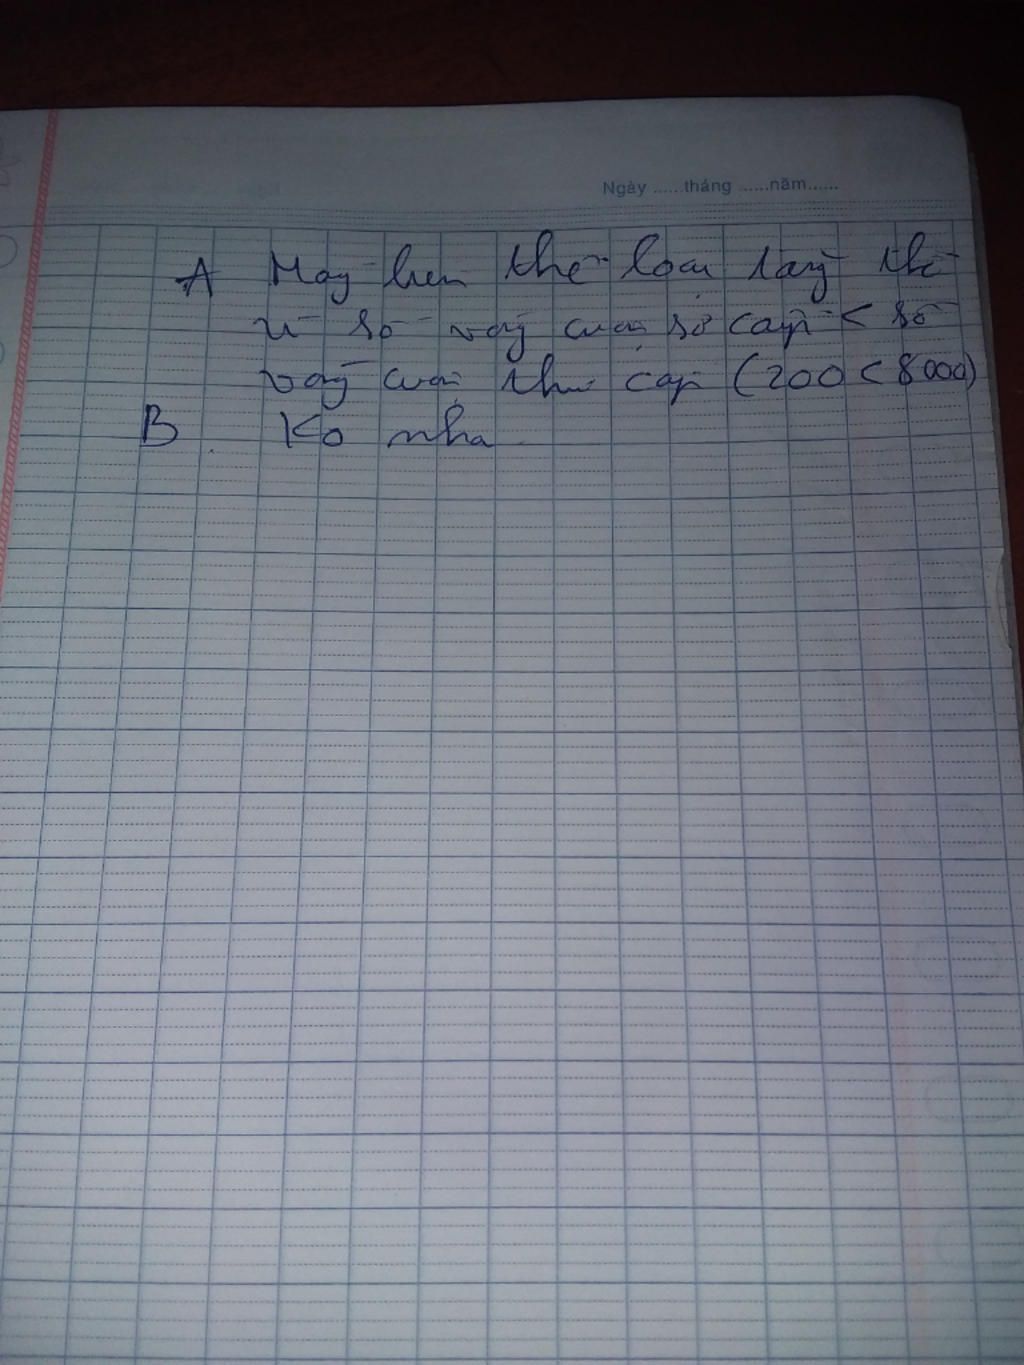 Ngày ......tháng ......năm......
A Máy biến thế loại tăng thế
vì số vòng cuộn sơ cấp < số
vòng cuộn thứ cấp (200 < 8000)
B Ko nha